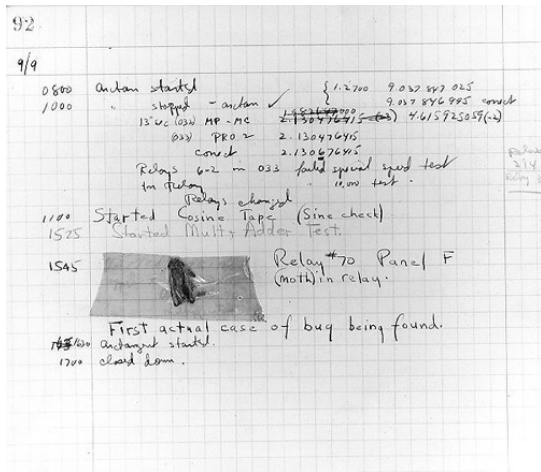 92
9/9
0800 antan started
1000 " stopped - antan ✓ { 1.2700 9.037 847 025
9.037 846 995 correct
13"uc (032) MP-MC 2.130476415 (-3) 4.615925059(-2)
(033) PRO 2 2.130476415
correct 2.130676415
Relays 6-2 in 033 failed special speed test
In Relay " 10,000 test .
Relays changed
1100 Started Cosine Tape (Sine check)
1525 Started Mult + Adder Test.
1545 Relay #70 Panel F
(moth) in relay.
First actual case of bug being found.
1630 antangent started.
1700 closed down .